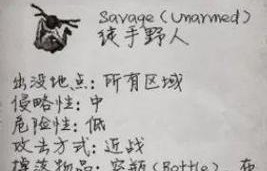 Savage (Unarmed)
徒手野人
出没地点：所有区域
侵略性：中
危险性：低
攻击方式：近战
掉落物品：空瓶(Bottle)、布